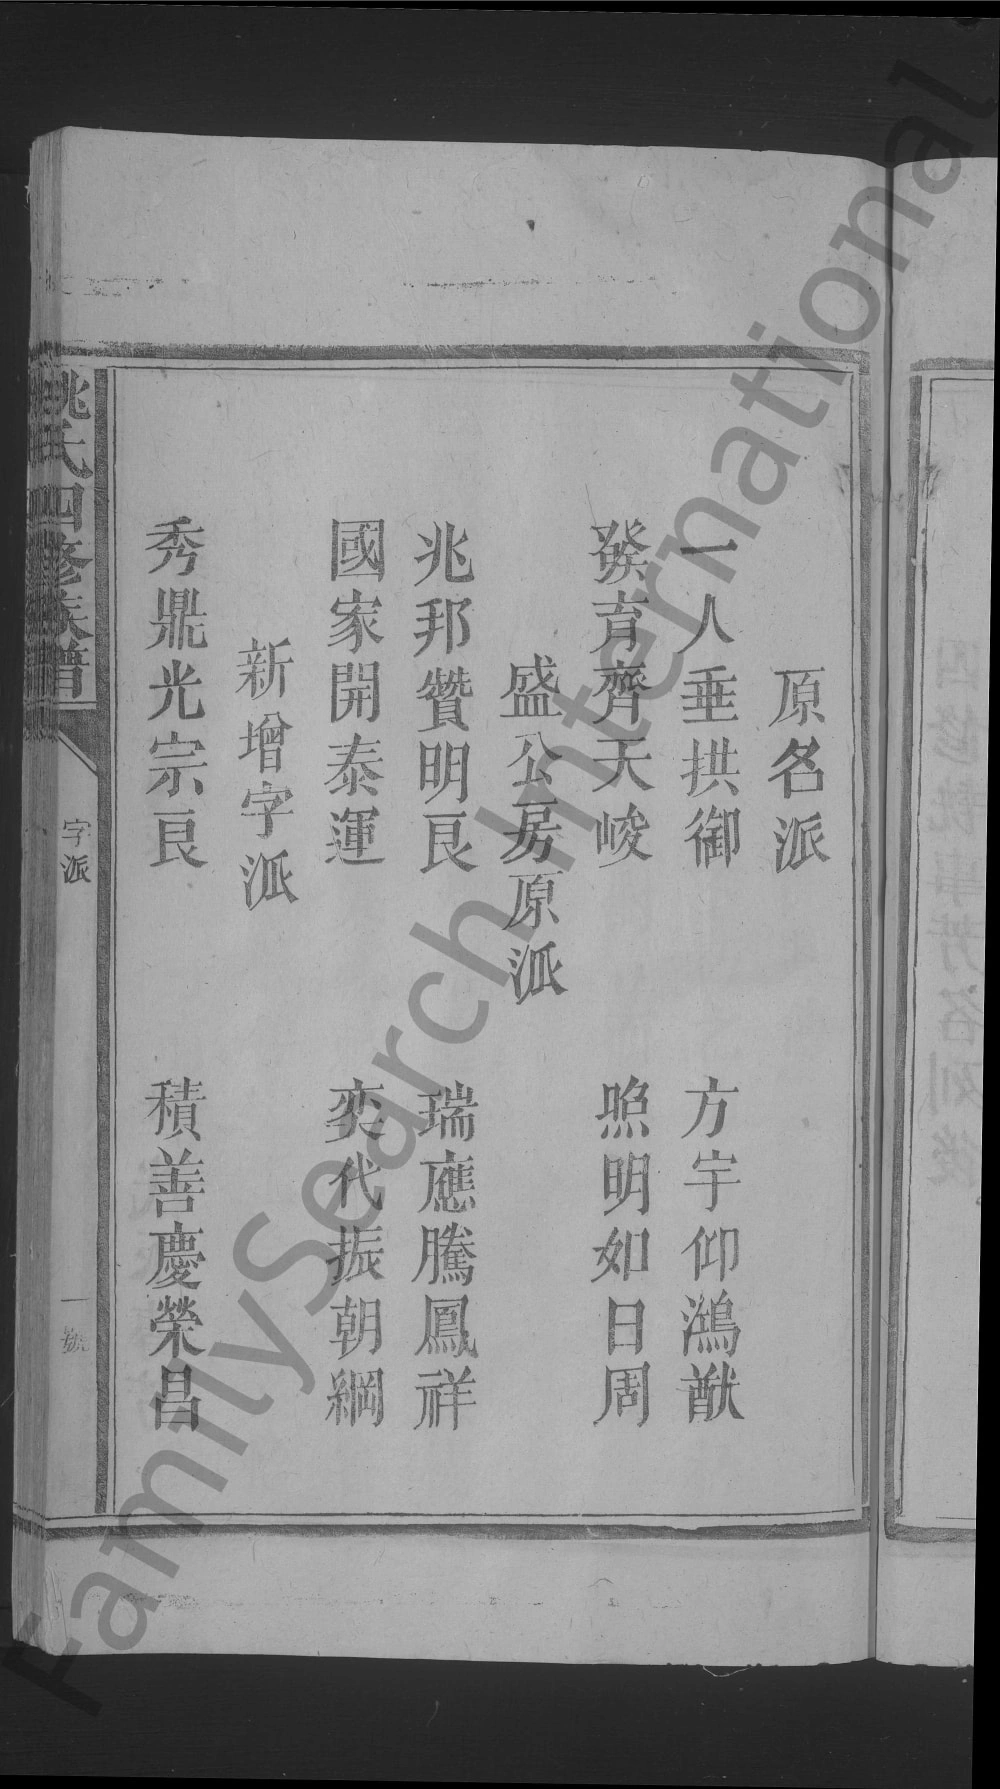 原名派
一人垂拱御 方宇仰鴻猷
發育齊天峻 照明如日周
盛公房原派
兆邦贊明良 瑞應騰鳳祥
國家開泰運 奕代振朝綱
新增字派
秀鼎光宗良 積善慶榮昌
姚氏四修族譜
字派
一
號
FamilySearch International